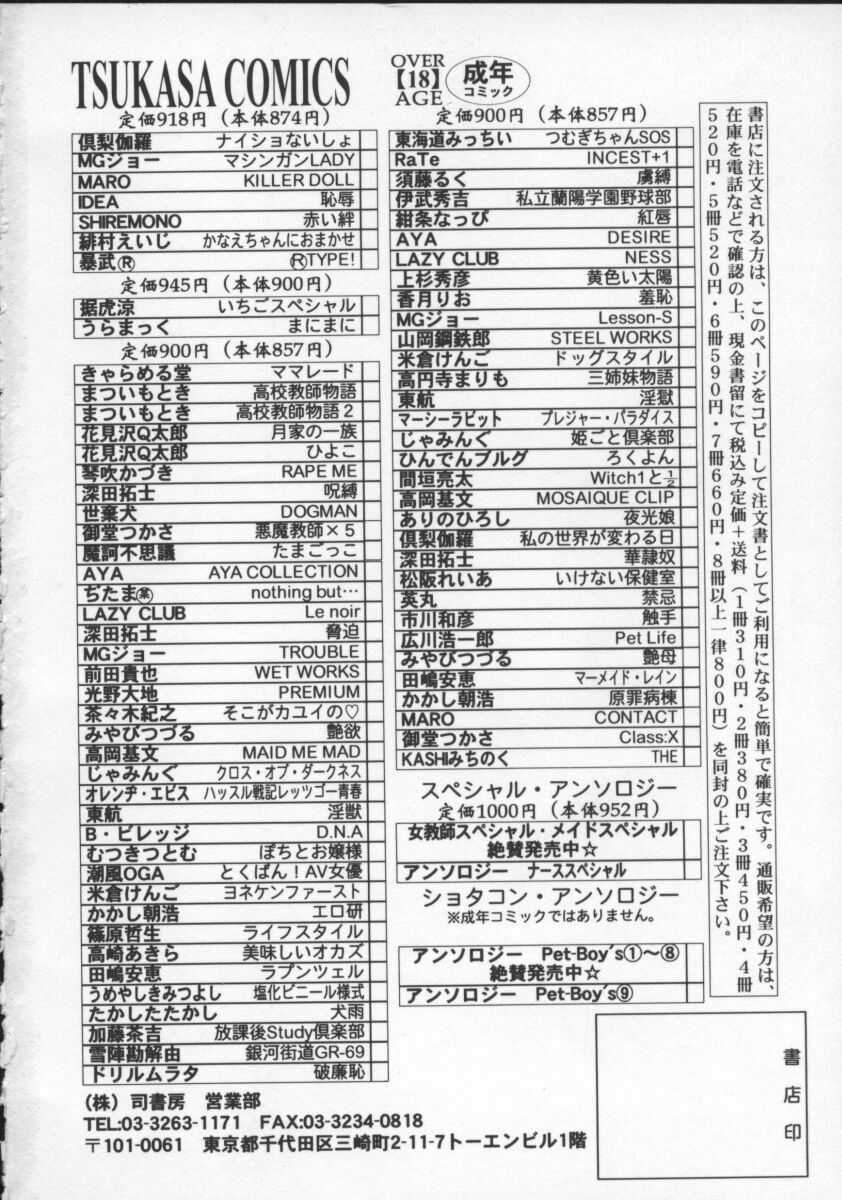 TSUKASA COMICS
OVER
【18】
AGE
成年
コミック
定価918円(本体874円)
倶梨伽羅 ナイショないしょ
MGジョー マシンガンLADY
MARO KILLER DOLL
IDEA 恥辱
SHIREMONO 赤い絆
緋村えいじ かなえちゃんにおまかせ
暴武Ⓡ ⓇTYPE!
定価945円(本体900円)
据虎涼 いちごスペシャル
うらまっく まにまに
定価900円(本体857円)
きゃらめる堂 ママレード
まついもとき 高校教師物語
まついもとき 高校教師物語2
花見沢Q太郎 月家の一族
花見沢Q太郎 ひよこ
琴吹かづき RAPE ME
深田拓士 呪縛
世棄犬 DOGMAN
御堂つかさ 悪魔教師×5
魔訶不思議 たまごっこ
AYA AYA COLLECTION
ぢたま㊫ nothing but…
LAZY CLUB Le noir
深田拓士 脅迫
MGジョー TROUBLE
前田貴也 WET WORKS
光野大地 PREMIUM
茶々木紀之 そこがカユイの♡
みやびつづる 艶欲
高岡基文 MAID ME MAD
じゃみんぐ クロス・オブ・ダークネス
オレンヂ・エビス ハッスル戦記レッツゴー青春
東航 淫獣
B・ビレッジ D.N.A
むつきつとむ ぽちとお嬢様
潮風OGA とくばん!AV女優
米倉けんご ヨネケンファースト
かかし朝浩 エロ研
篠原哲生 ライフスタイル
高崎あきら 美味しいオカズ
田嶋安恵 ラプンツェル
うめやしきみつよし 塩化ビニール様式
たかしたたかし 犬雨
加藤茶吉 放課後Study倶楽部
雪陣勘解由 銀河街道GR-69
ドリルムラタ 破廉恥
定価900円(本体857円)
東海道みっちい つむぎちゃんSOS
RaTe INCEST+1
須藤るく 虜縛
伊武秀吉 私立蘭陽学園野球部
紺条なっぴ 紅唇
AYA DESIRE
LAZY CLUB NESS
上杉秀彦 黄色い太陽
香月りお 羞恥
MGジョー Lesson-S
山岡鋼鉄郎 STEEL WORKS
米倉けんご ドッグスタイル
高円寺まりも 三姉妹物語
東航 淫獄
マーシーラビット プレジャー・パラダイス
じゃみんぐ 姫ごと倶楽部
ひんでんブルグ ろくよん
間垣亮太 Witch1と½
高岡基文 MOSAIQUE CLIP
ありのひろし 夜光娘
倶梨伽羅 私の世界が変わる日
深田拓士 華隷奴
松阪れいあ いけない保健室
英丸 禁忌
市川和彦 触手
広川浩一郎 Pet Life
みやびつづる 艶母
田嶋安恵 マーメイド・レイン
かかし朝浩 原罪病棟
MARO CONTACT
御堂つかさ Class:X
KASHIみちのく THE
スペシャル・アンソロジー
定価1000円(本体952円)
女教師スペシャル・メイドスペシャル
絶賛発売中☆
アンソロジー ナーススペシャル
ショタコン・アンソロジー
※成年コミックではありません。
アンソロジー Pet-Boy's①〜⑧
絶賛発売中☆
アンソロジー Pet-Boy's⑨
書店に注文される方は、このページをコピーして注文書としてご利用になると簡単で確実です。通販希望の方は、
在庫を電話などで確認の上、現金書留にて税込み定価+送料(1冊310円・2冊380円・3冊450円・4冊
520円・5冊520円・6冊590円・7冊660円・8冊以上一律800円)を同封の上ご注文下さい。
書店印
(株)司書房 営業部
TEL:03-3263-1171 FAX:03-3234-0818
〒101-0061 東京都千代田区三崎町2-11-7トーエンビル1階